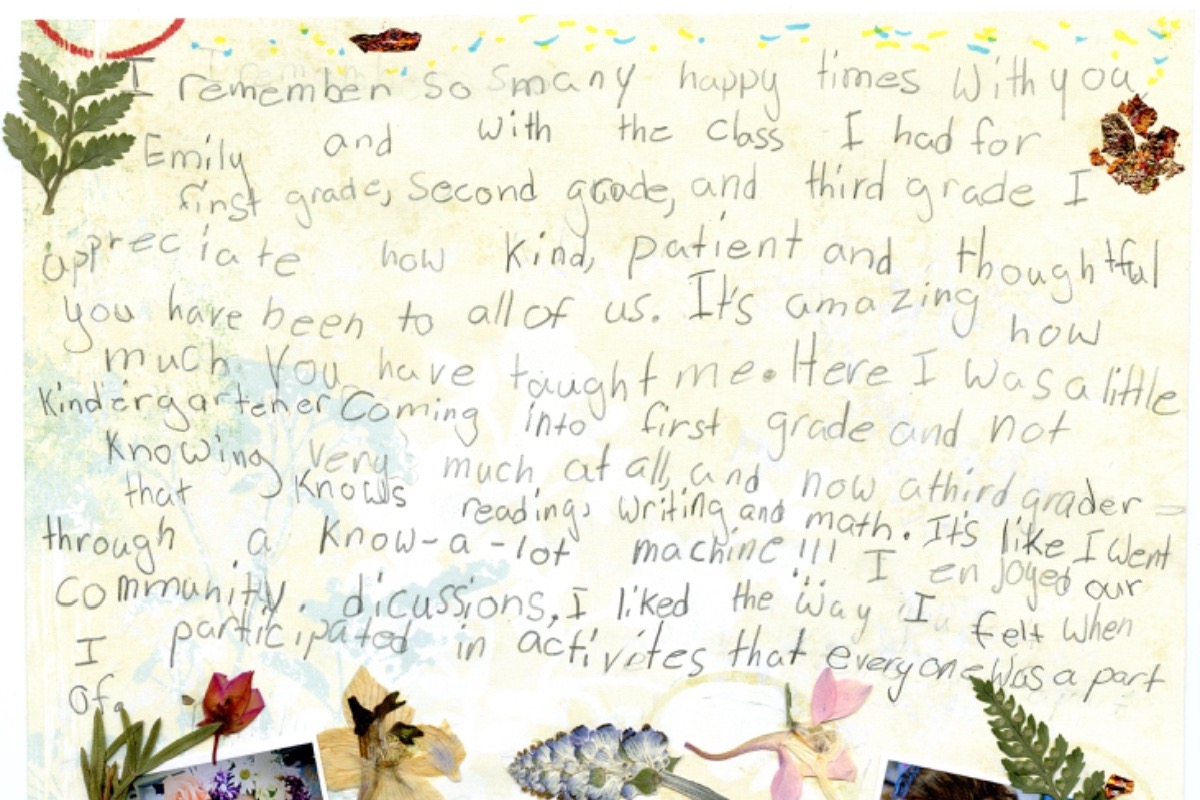 I remember so many happy times with you,
Emily and with the class I had for
first grade, second grade, and third grade I
appreciate how kind, patient and thoughtful
you have been to all of us. It's amazing how
much you have taught me. Here I was a little
kindergartener coming into first grade and not
knowing very much at all, and now a third grader
that knows reading, writing and math. It's like I went
through a know-a-lot machine!!! I enjoyed our
community. dicussions, I liked the way I felt when
I participated in activites that everyone was a part
of.